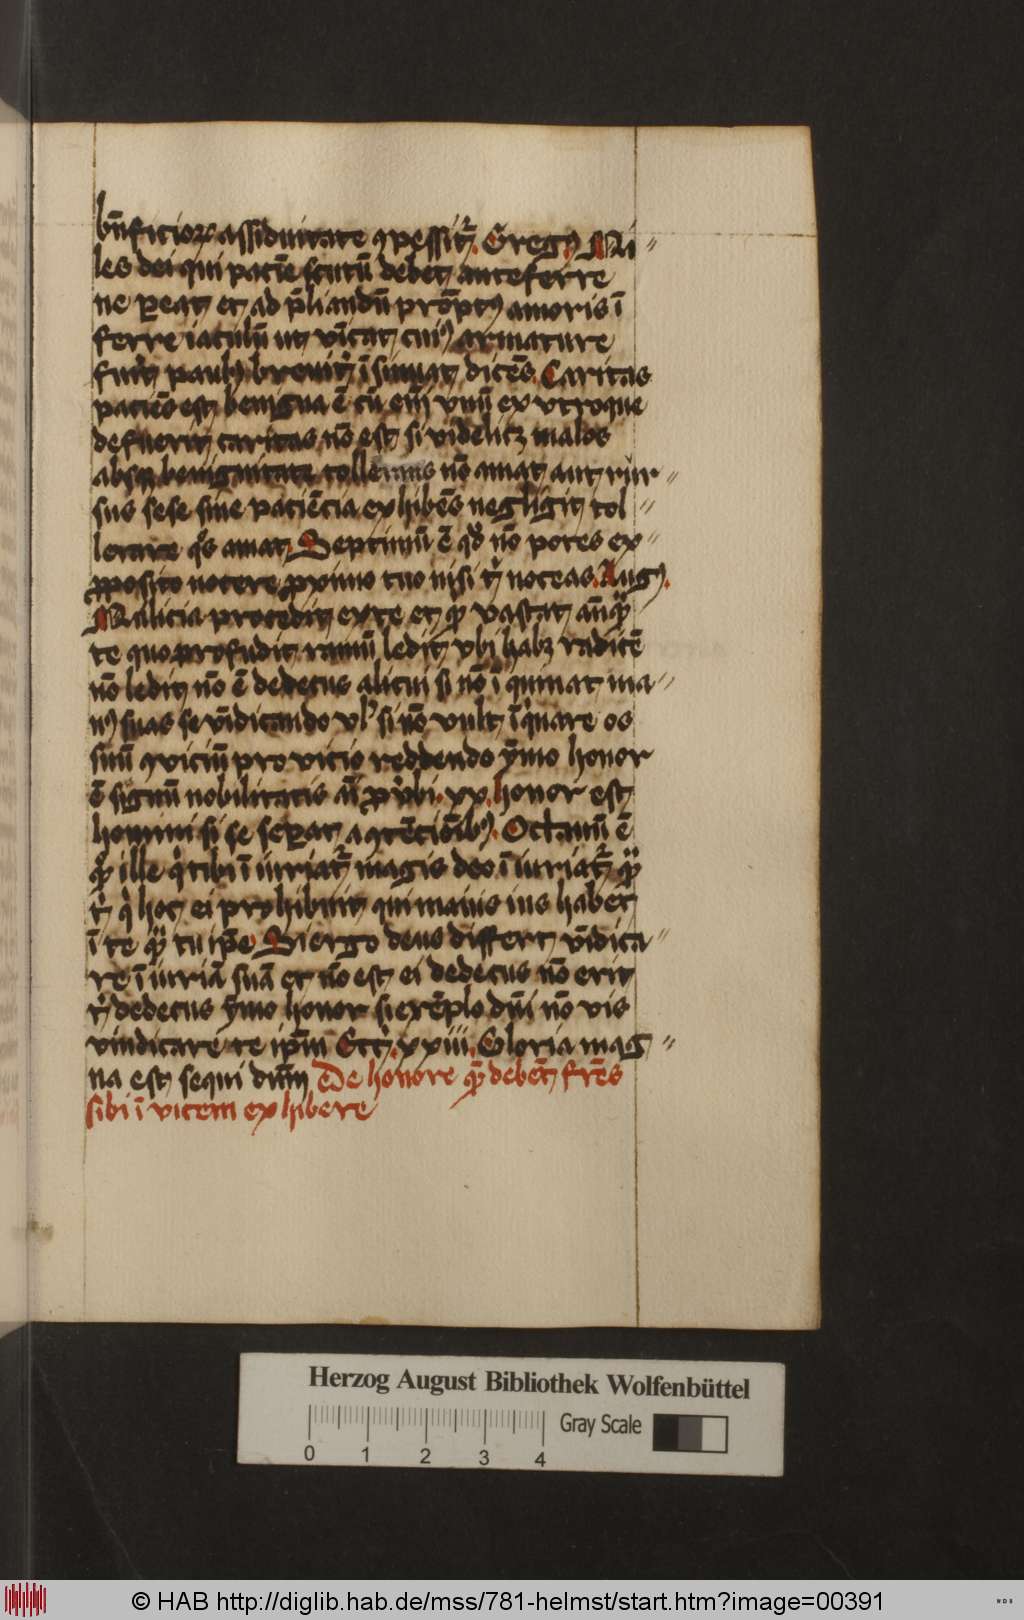 bn̄ficioꝝ assiduitate ꝯpessit᷑. Gregꝰ Mi〃
les dei qui pacīe scutū debet anteferre
ne ꝑeat et ad p̄liandū prōptꝰ amoris ī
ferre iaculū ut vīcat cuiꝰ armature
paulꝰ breuit᷑ īsinuat dicēs. Caritas
paciēs est benigna ē cū em̄ vnū ex vtroque
defuerit caritas nō est si videlicꝫ malos
absqꝫ benignitate nō amat aut rur〃
sus sese sine paciēcia exhibēs negligit tol〃
lerare qͦs amat. Septimū ē qd̓ nō potes ex〃
ꝓposito nocere ꝓximo tuo nisi t᷑ noceas. Augꝰ.
Malicia procedit ex te et vastat
te quo profudit ramū ledit vbi habꝫ radicē
nō ledit nō ē dedecus alicui si nō īquinat ma〃
nꝰ suas se vīdicando vl̓ si nō vult īqͥnare os
suū ꝯviciū pro vicio reddendo ȳmo honor
ē signū nobilitatis aī ꝓv̓bi. xx. honor est
homini si se seꝑat a ꝯtēcioībꝰ. Octauū ē
ꝙ ille qͥ tibi īiuriat᷑ magis deo īiuriat᷑ ꝙ̈
t᷑ qͥ hoc ei prohibuit qui maius ius habet
ī te ꝙ̈ tu ip̄e. Si ergo deus differt vīdica〃
re īiuriā suā et nō est ei dedecus nō erit
t᷑ dedecus ȳmo honor si exēplo dn̄i nō vis
vindicare te ip̄m Ecc̓. xxiii. Gloria mag〃
na est sequi dn̄m De honore ꝙ̄ debēt fr̄es
sibi ī vicem exhibere
Herzog August Bibliothek Wolfenbüttel
Gray Scale
0 1 2 3 4
© HAB http://diglib.hab.de/mss/781-helmst/start.htm?image=00391